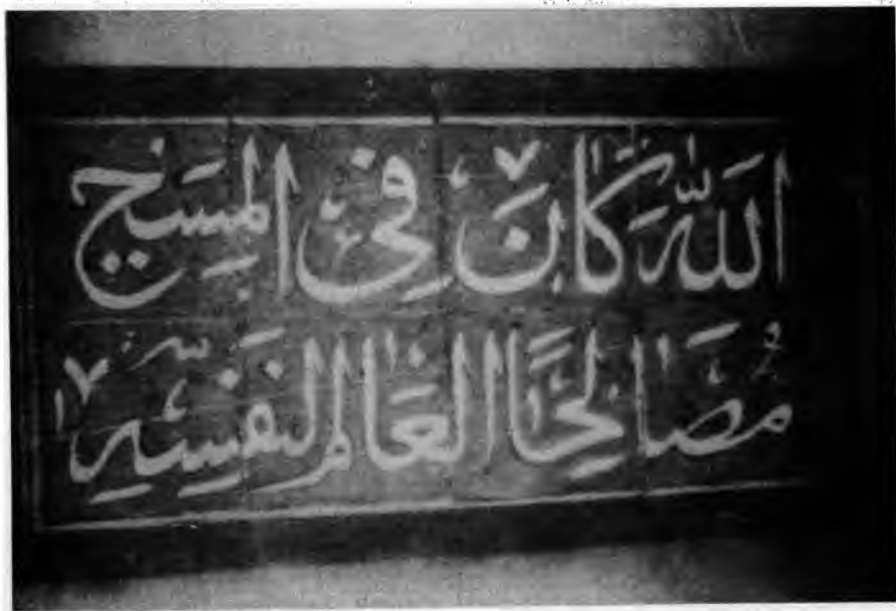 اللَّهُ كَانَ فِي الْمَسِيحِ
مُصَالِحًا الْعَالَمَ لِنَفْسِهِ